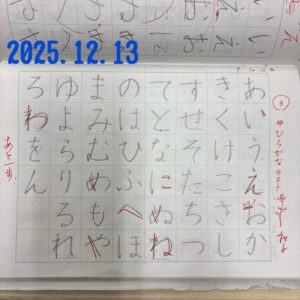 2025.12.13
③
☆ひらがなテスト
あいうえおか
きくけこさし
すせそたちつ
てとなにぬね
のはひふへほ
まみむめもや
ゆよらりるれ
ろわをん
あと一歩